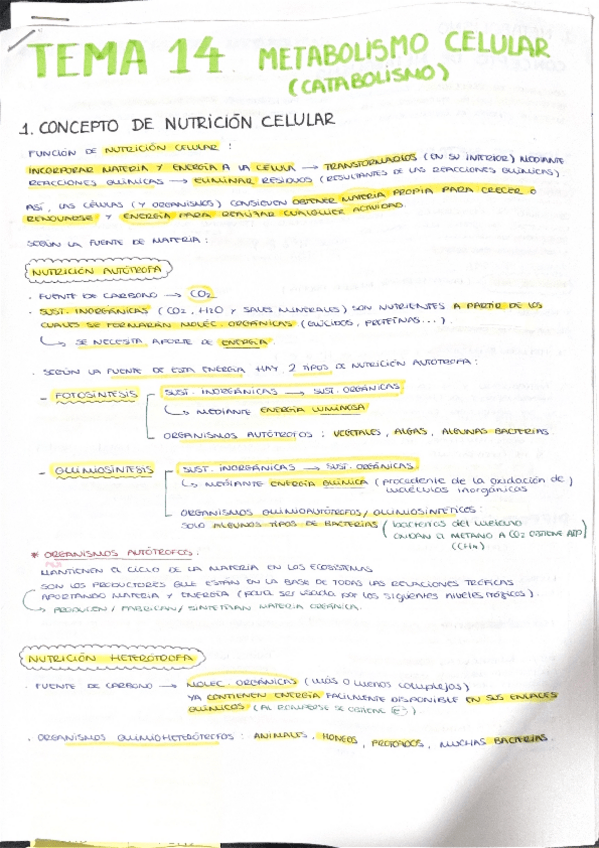 TEMA 14 METABOLISMO CELULAR
(CATABOLISMO)
1. CONCEPTO DE NUTRICIÓN CELULAR
FUNCIÓN DE NUTRICIÓN CELULAR :
INCORPORAR MATERIA Y ENERGÍA A LA CÉLULA → TRANSFORMADOS (EN SU INTERIOR) MEDIANTE
REACCIONES QUÍMICAS → ELIMINAR RESIDUOS (RESULTANTES DE LAS REACCIONES QUÍMICAS).
ASÍ, LAS CÉLULAS (Y ORGANISMOS) CONSIGUEN OBTENER MATERIA PROPIA PARA CRECER O
RENOVARSE Y ENERGÍA PARA REALIZAR CUALQUIER ACTIVIDAD.
SEGÚN LA FUENTE DE MATERIA :
NUTRICIÓN AUTÓTROFA
· FUENTE DE CARBONO → CO2
· SUST. INORGÁNICAS (CO2, H2O Y SALES MINERALES) SON NUTRIENTES A PARTIR DE LOS
CUALES SE FORMARÁN MOLÉC. ORGÁNICAS (GLÚCIDOS, PROTEÍNAS...).
↳ SE NECESITA APORTE DE ENERGÍA
· SEGÚN LA FUENTE DE ESTA ENERGÍA HAY 2 TIPOS DE NUTRICIÓN AUTÓTROFA :
- FOTOSÍNTESIS SUST. INORGÁNICAS → SUST. ORGÁNICAS
↳ MEDIANTE ENERGÍA LUMINOSA
ORGANISMOS AUTÓTROFOS : VEGETALES, ALGAS, ALGUNAS BACTERIAS
- QUIMIOSÍNTESIS SUST. INORGÁNICAS → SUST. ORGÁNICAS
↳ MEDIANTE ENERGÍA QUÍMICA (procedente de la oxidación de)
moléculas inorgánicas
ORGANISMOS QUIMIOAUTÓTROFOS/QUIMIOSINTÉTICOS :
SOLO ALGUNOS TIPOS DE BACTERIAS (bacterias del metano
OXIDAN EL METANO A CO2 OBTIENE ATP)
(CH4)
* ORGANISMOS AUTÓTROFOS :
MANTIENEN EL CICLO DE LA MATERIA EN LOS ECOSISTEMAS
SON LOS PRODUCTORES QUE ESTÁN EN LA BASE DE TODAS LAS RELACIONES TRÓFICAS
APORTANDO MATERIA Y ENERGÍA (para ser usada por los siguientes niveles tróficos).
→ PRODUCEN / FABRICAN / SINTETIZAN MATERIA ORGÁNICA.
NUTRICIÓN HETERÓTROFA
· FUENTE DE CARBONO → MOLEC. ORGÁNICAS (más o menos complejas)
YA CONTIENEN ENERGÍA FACILMENTE DISPONIBLE EN SUS ENLACES
QUÍMICOS (AL ROMPERSE SE OBTIENE E)
· ORGANISMOS QUIMIOHETERÓTROFOS : ANIMALES, HONGOS, PROTOZOOS, MUCHAS BACTERIAS.